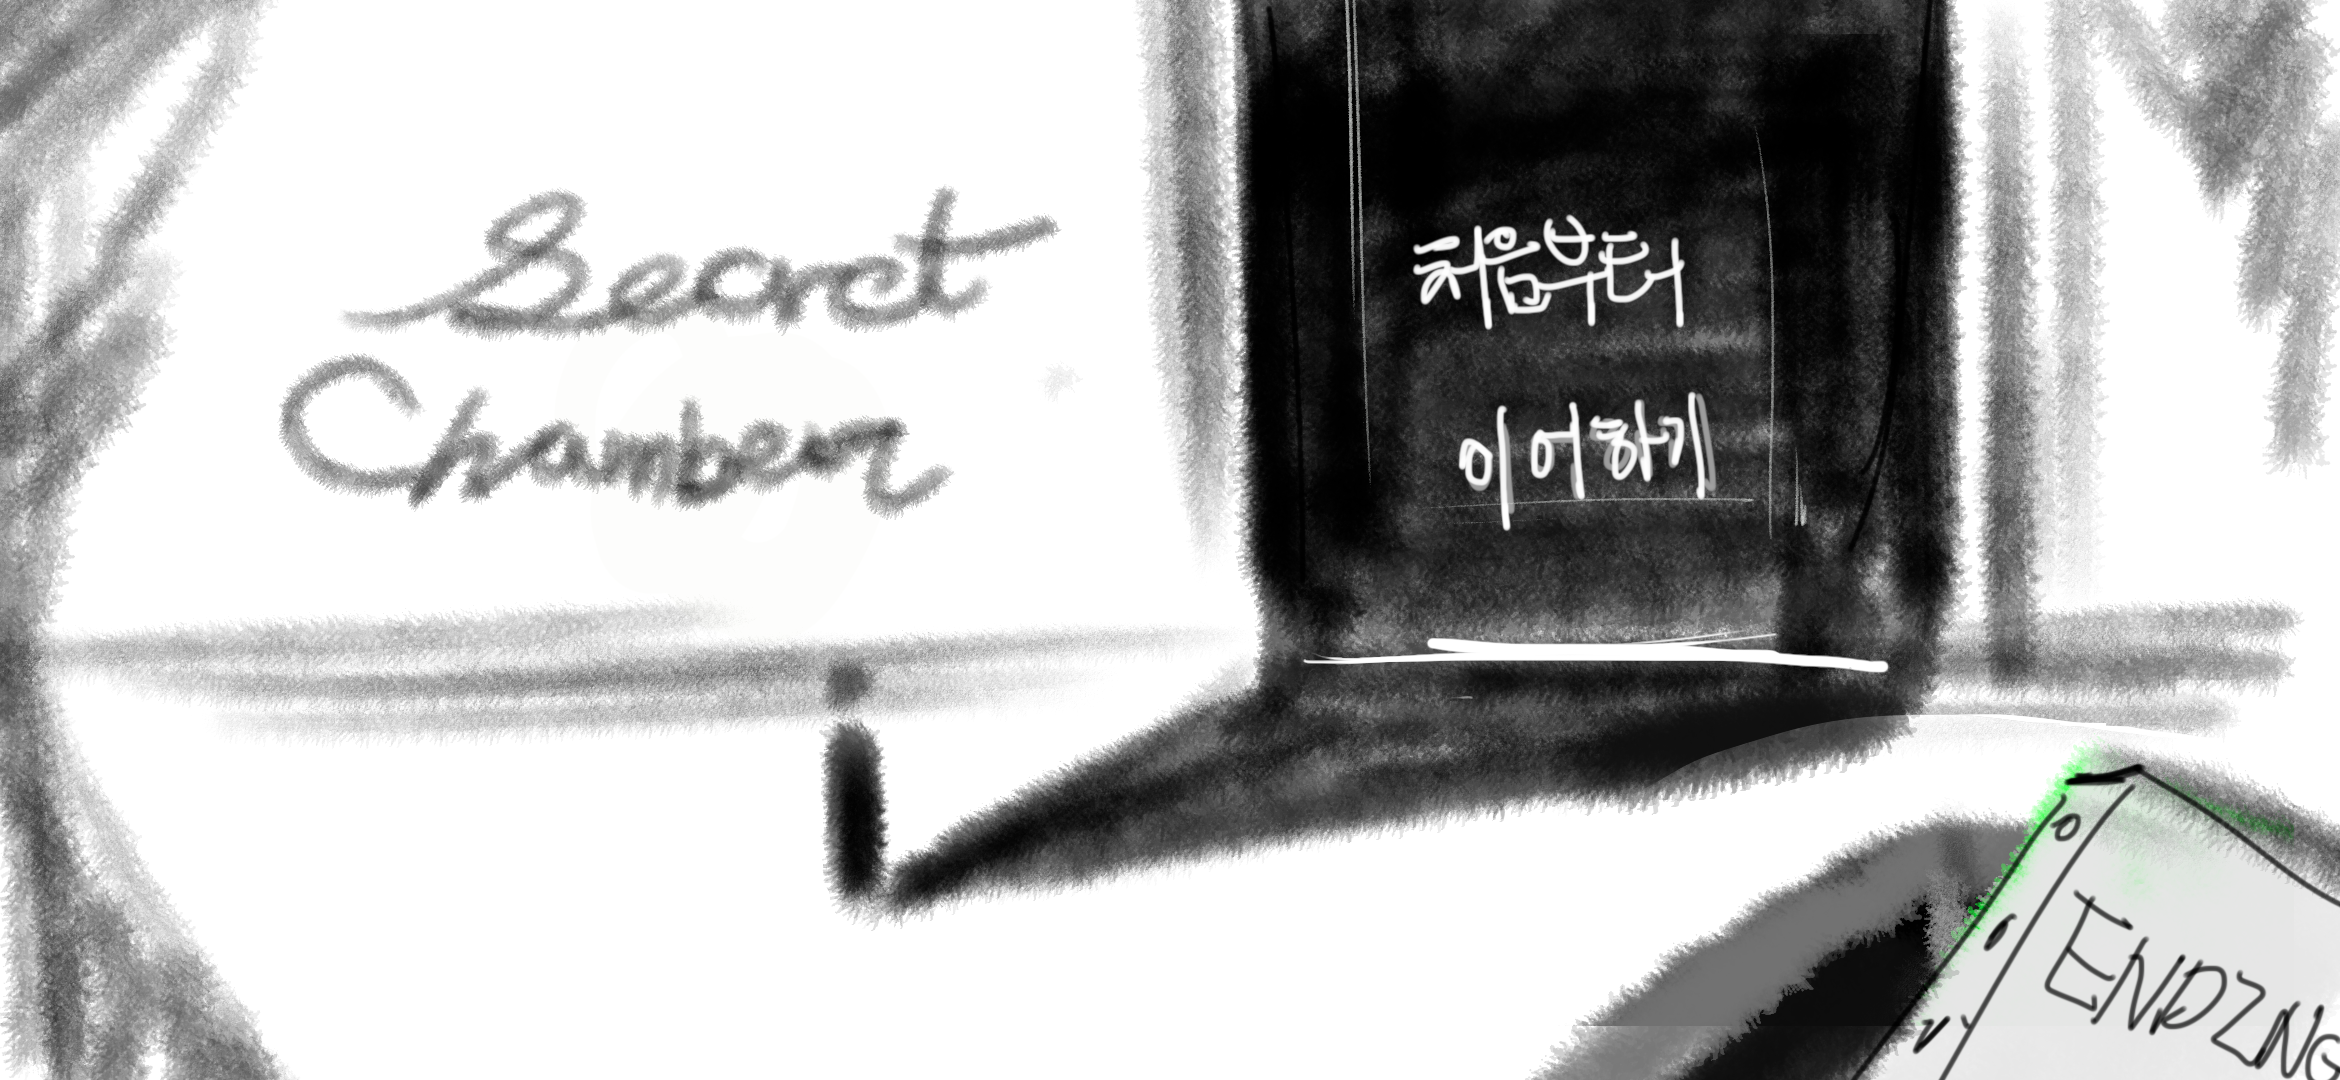 Secret
Chamber
처음부터
이어하기
ENDING